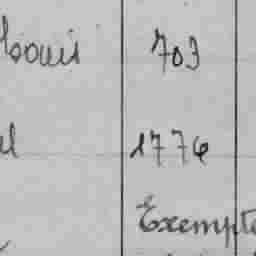 Louis 703
el 1776
Exempte